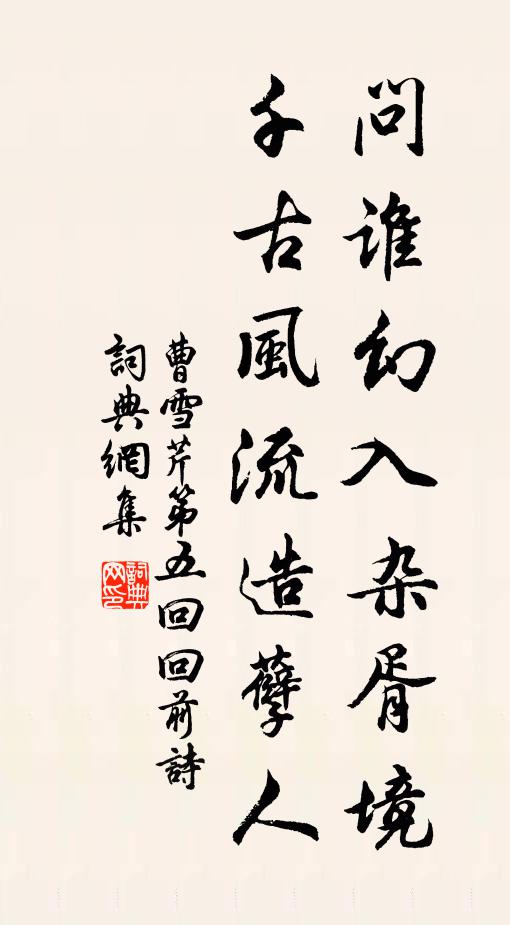 問誰幻入杂胥境
千古風流造孽人
曹雪芹第五回回前詩
詞典網集
詞典网印